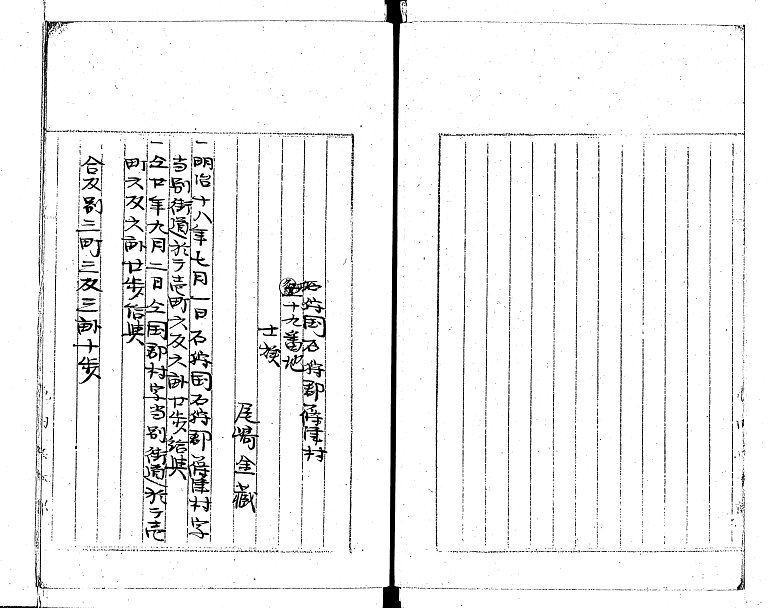 石狩国石狩郡篠津村
十九番地
士族
尾崎金蔵
一明治十八年七月一日石狩国石狩郡篠津村字
当別街道ニ於テ壱町六反六畝廿歩給与
一仝廿年九月二日仝国郡村字当別街道ニ於テ壱
町六反六畝廿歩給与
合反別三町三反三畝十歩